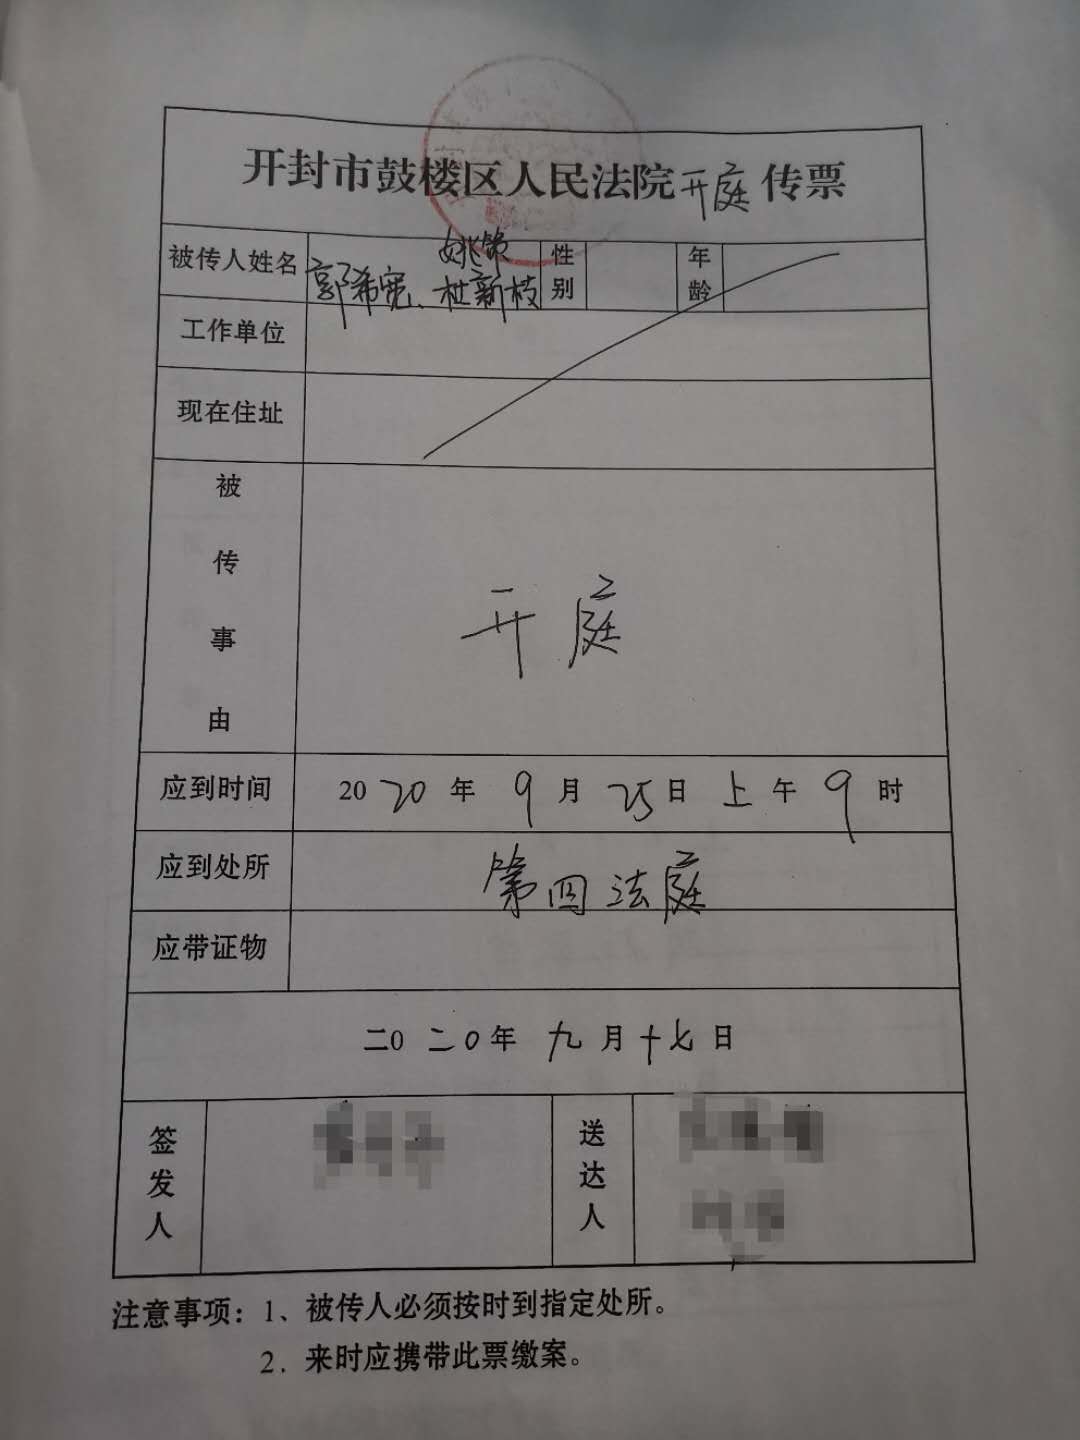 开封市鼓楼区人民法院开庭传票
被传人姓名 姚策 郭希宽、杜新枝 性别 年龄
工作单位
现在住址
被传事由 开庭
应到时间 2020年9月25日上午9时
应到处所 第四法庭
应带证物
二0二0年九月十七日
签发人 送达人
注意事项：1、被传人必须按时到指定处所。
2．来时应携带此票缴案。